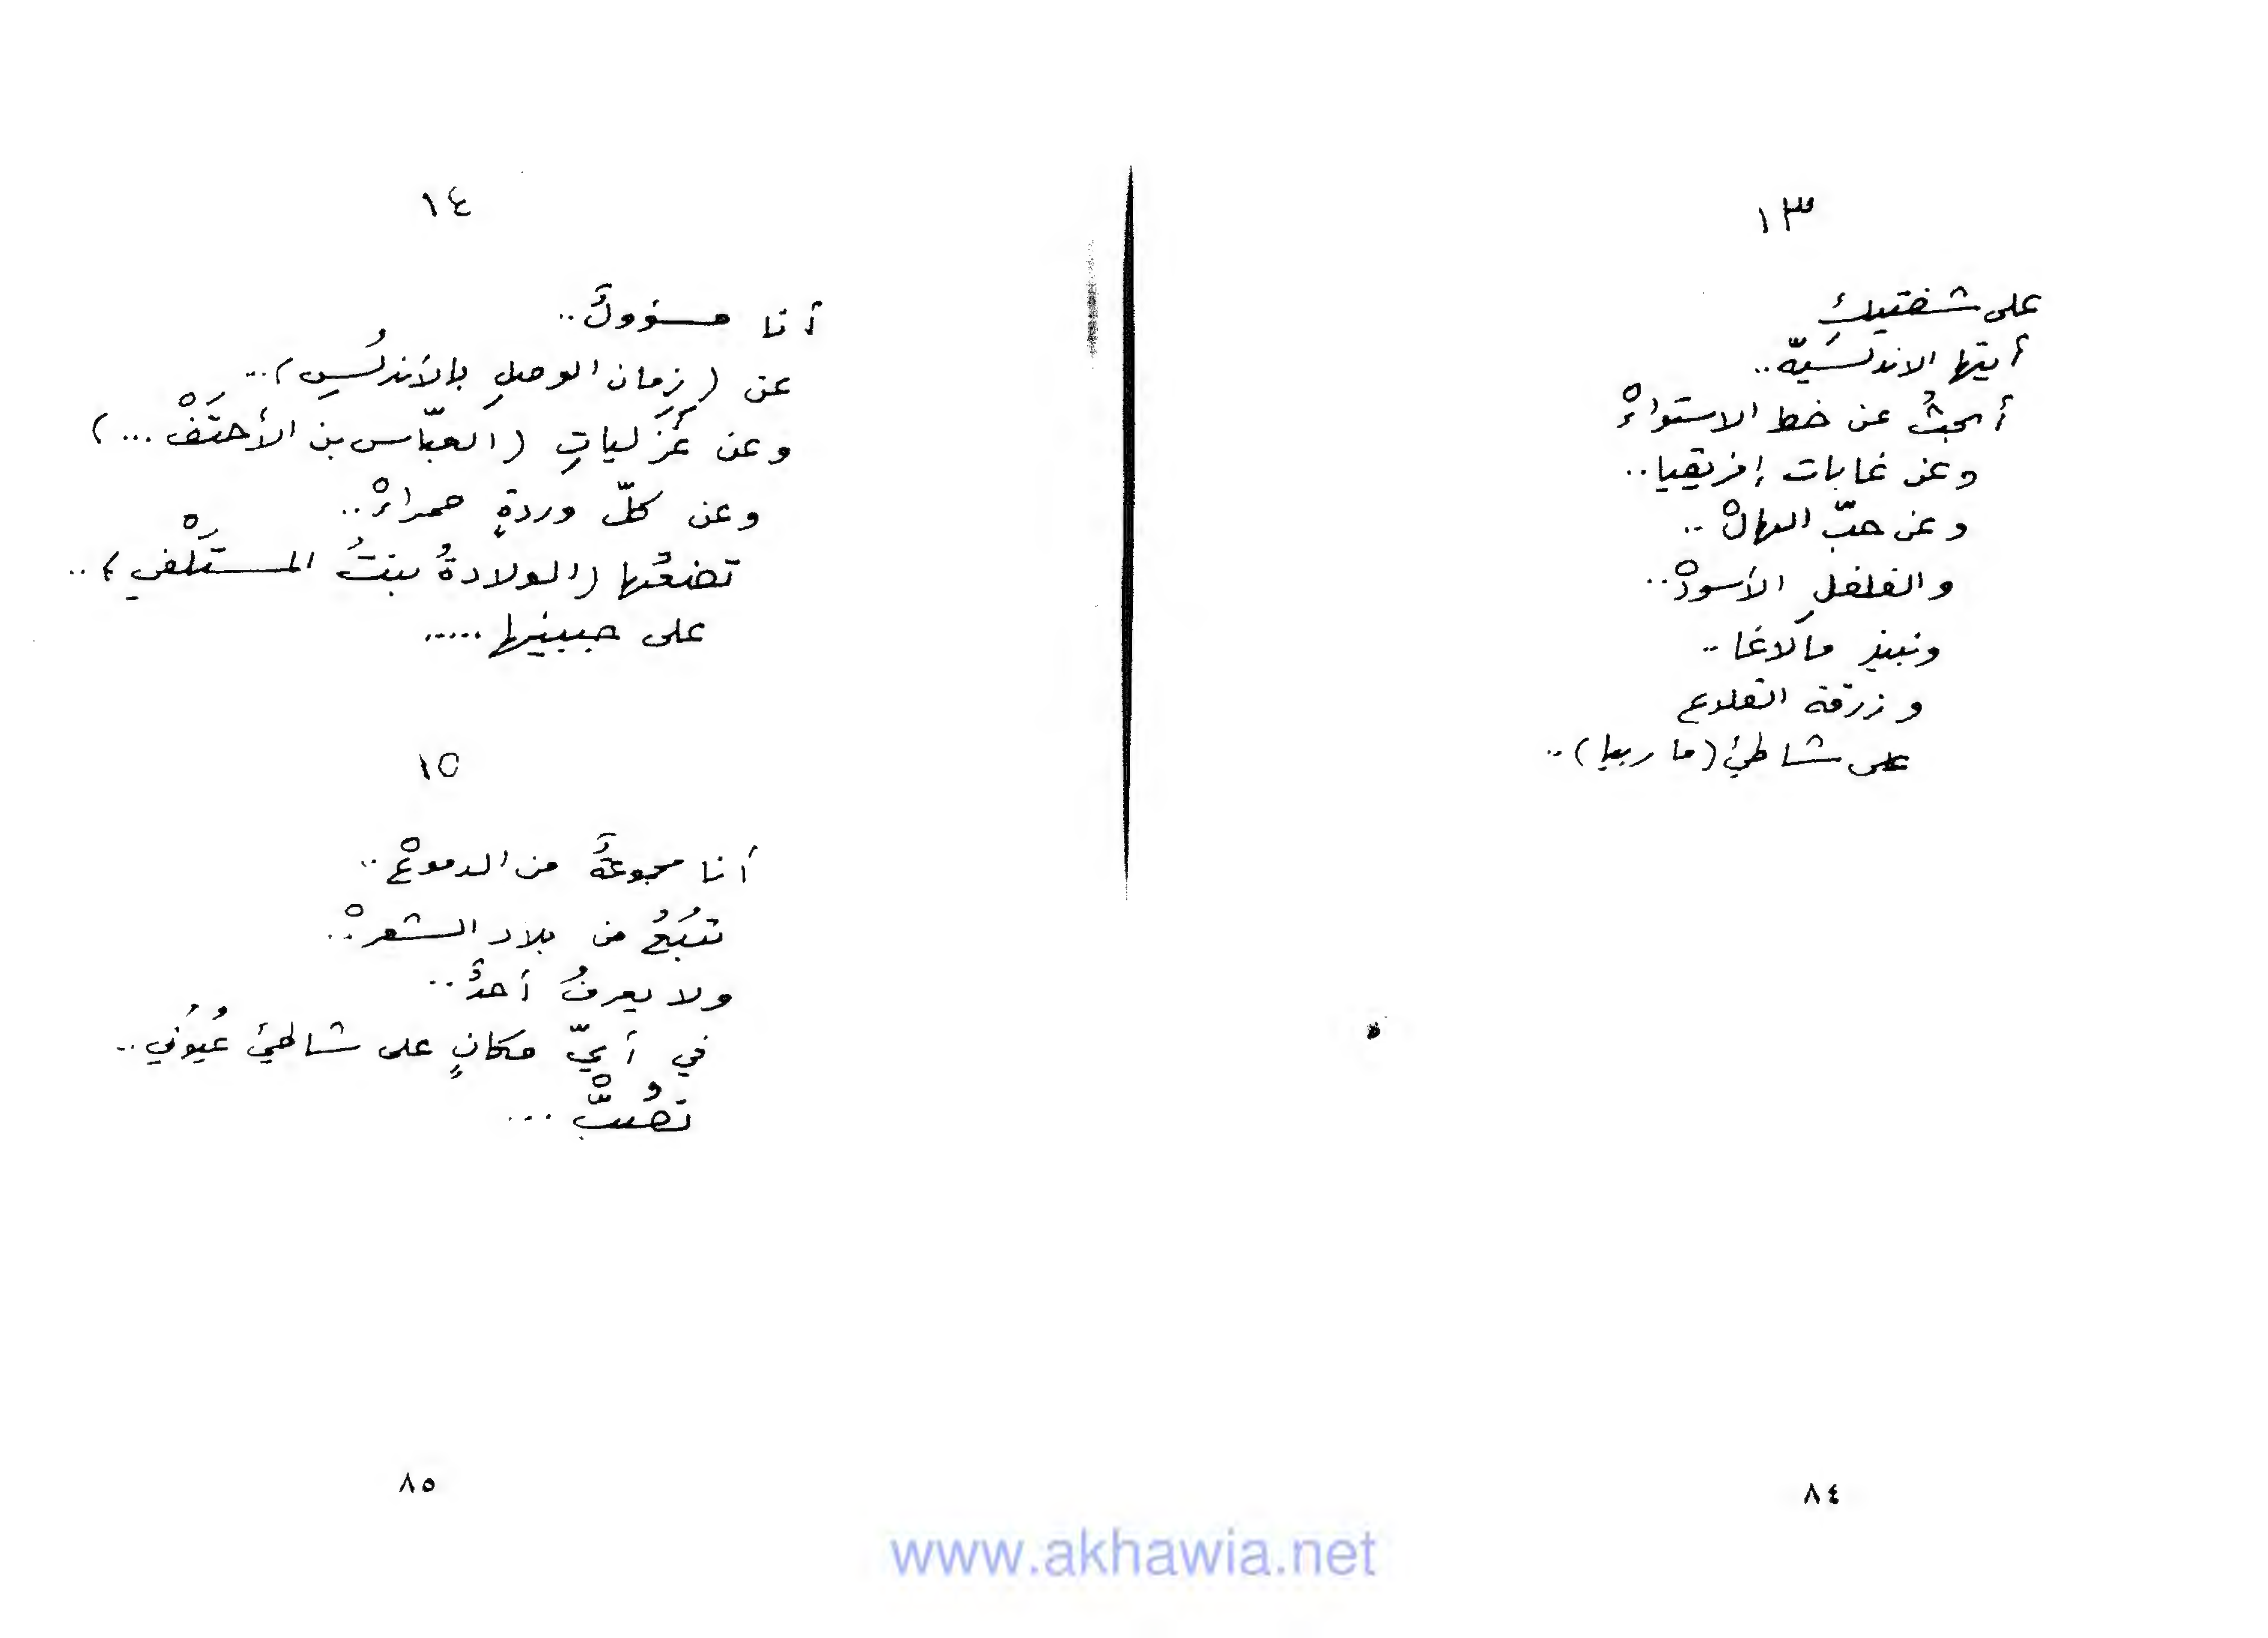 ١٣
على شفتيكِ
أيتها الاندلُسيّة..
أبحثُ عن خط الاستواءْ
وعن غابات إفريقيا..
وعن حبّ الهالْ ..
والفلفلِ الأسودْ..
ونبيذ مالاغا ..
وزرقة القلاع
على شاطئ (ماربيا) ..
٨٤
١٤
أنا مسؤولٌ..
عن (زمان الوصلِ بالأندلُسِ)...
وعن غَزَلياتِ (العبّاس بن الأحنَفْ ...)
وعن كلّ وردةٍ حمراءْ..
تضعُها (الولادةُ بنتُ المستَكْفي)..
على جبينها .....
١٥
أنا مجموعةٌ من الدموعْ ..
تنبُعُ من بلاد الشعرْ..
ولا يعرفُ أحدٌ..
في أيّ مكانٍ على شاطئ عُيُوني..
تصُبّْ ...
٨٥
www.akhawia.net